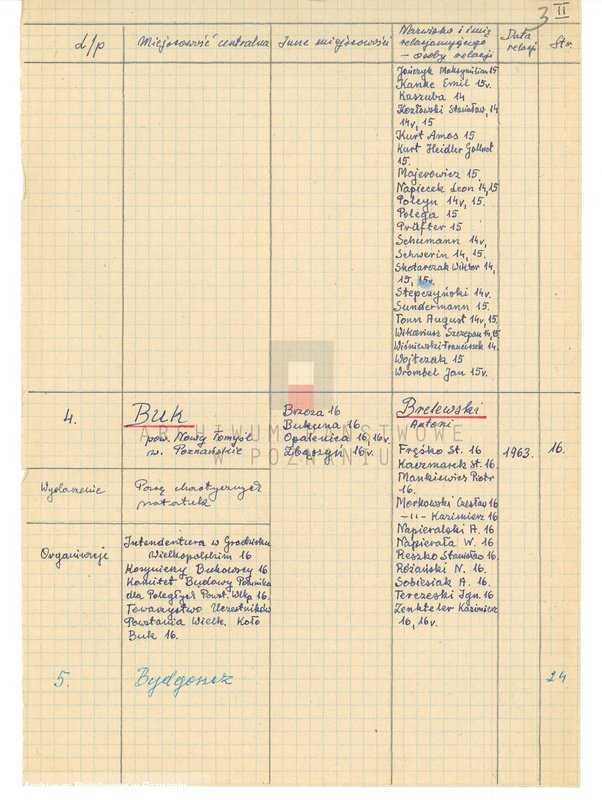 3 II
L/p
Miejscowość centralna
Inne miejscowości
Nazwisko i imię
relacjonującego
- osoby relacji
Data
relacji
Str.
Jończyk Maksymilian 15
Kanke Emil 15v.
Kaszuba 14
Kozłowski Stanisław, 14
14v, 15
Kurt Amos 15
Kurt Heidler
15.
Majerowicz 15.
Napiecek Leon 14, 15
Poleyn 14v, 15.
Polega 15
Prüfter 15
Schumann 14v,
Schwerin 14, 15.
Skotarczak Wiktor 14,
15, 15v.
Stepczyński 14v.
Sundermann 15.
Tonn August 14v, 15.
Witkariusz Szczepan 14, 15
Wiśniewski Franciszek 14.
Wojtczak 15
Wrombel Jan 15v.
4.
Buk
pow. Nowy Tomyśl
w. Poznańskie
Brzoza 16
Bukuna 16
Opalenica 16, 16v.
Zbąszyń 16v.
Bretewski
Antoni
1963.
16.
Fręśko St. 16
Kaczmarek St. 16.
Mankiewicz Piotr
16.
Morkowski Czesław 16
-"- Kazimierz 16
Napieralski A. 16
Napierała W. 16
Reszko Stanisław 16.
Różański N. 16
Sobiesiak A. 16
Terczeski Ign. 16
Zenkteler Kazimierz
16, 16v.
Wydarzenie
Parę chaotycznych
notatek
Organizacje
Intendentura w Grodzisku
Wielkopolskim 16
Kosynierzy Bukowscy 16
Komitet Budowy Pomnika
dla Poległych Powst. Wlkp 16.
Towarzystwo Uczestników
Powstania Wielk. Koło
Buk 16.
5.
Bydgoszcz
24
ARCHIWUM PAŃSTWOWE
W POZNANIU
Archiwum Państwowe w Poznaniu